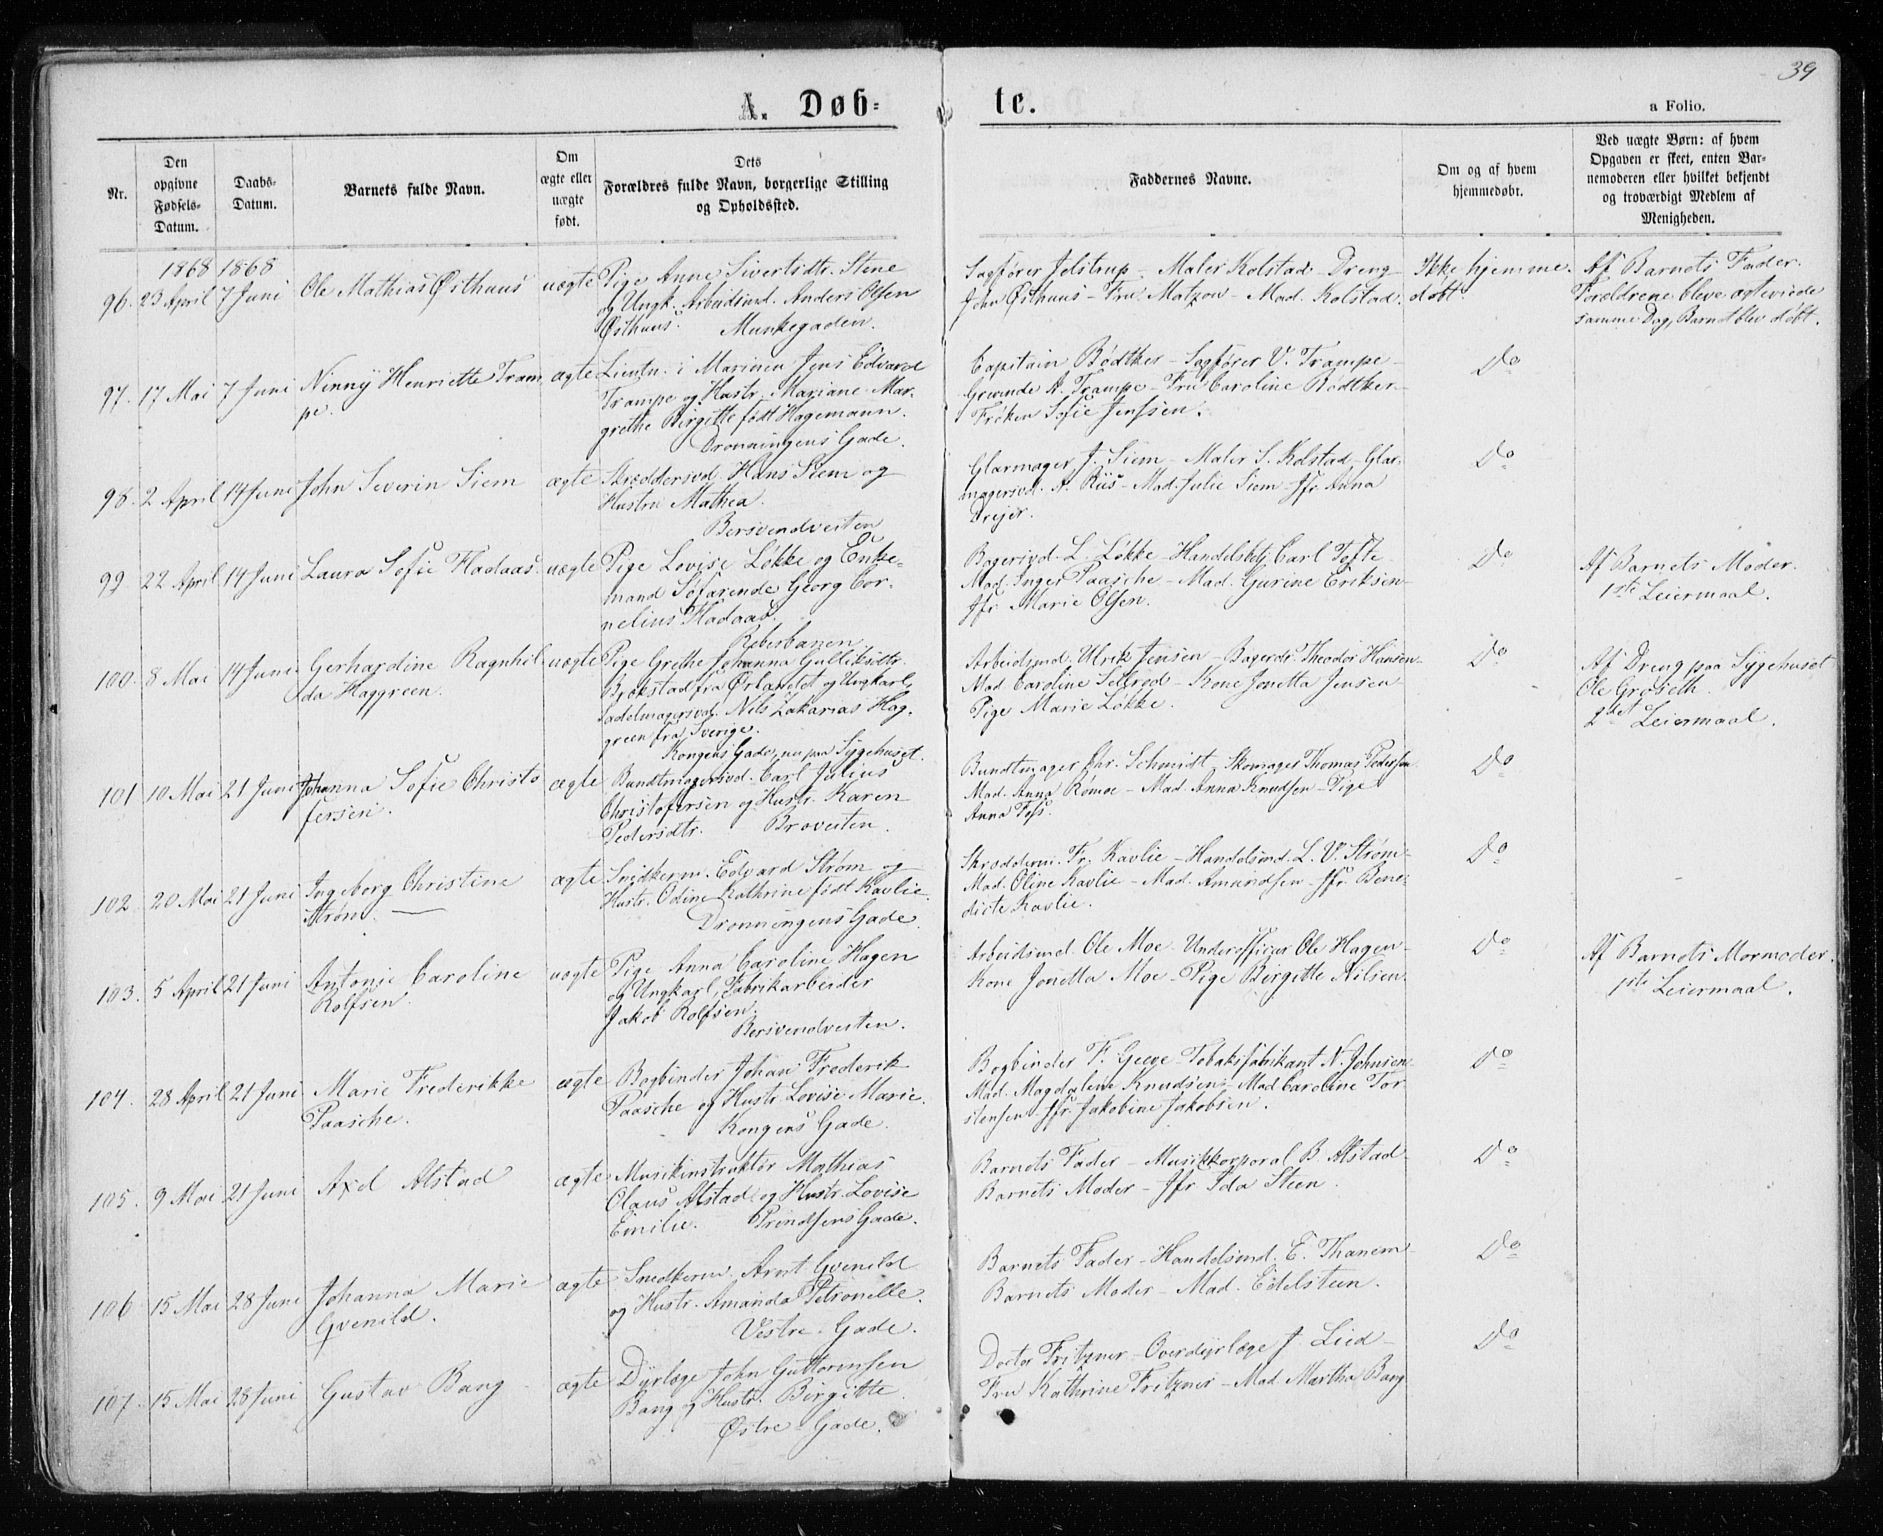 39
A. Døbte.
a Folio.
Nr.
Den opgivne Fødsels-Datum.
Daabs-Datum.
Barnets fulde Navn.
Om ægte eller uægte født.
Dets Forældres fulde Navn, borgerlige Stilling og Opholdssted.
Faddernes Navne.
Om og af hvem hjemmedøbt.
Ved uægte Børn: af hvem Opgaven er skeet, enten Barnemoderen eller hvilket bekjendt og troværdigt Medlem af Menigheden.
1868 1868
96. 23 April 7 Juni Ole Mathias Østhuus uægte Pige Anne Sivertsdtr. Stene
og Ungk. Arbeidsmd. Anders Olsen
Østhuus. Munkegaden.
Sagfører Jelstrup - Maler Kolstad - Dreng
John Østhuus - Fru Matzow - Mad. Kolstad.
Ikke hjemme-
døbt.
Af Barnets Fader.
Forældrene bleve ægteviede
samme Dag, Barnet blev døbt.
97. 17 Mai 7 Juni Ninny Henriette Tram-
pe.
ægte Lieutn. i Marinen Jens Edvard
Trampe og Hustr. Mariane Mar-
grethe Birgitte født Hagemann.
Dronningens Gade.
Capitain Bødtker - Sagfører V. Trampe -
Grevinde A. Trampe - Fru Caroline Bødtker -
Frøken Sofie Jenssen.
Do
98. 2 April 14 Juni John Severin Siem ægte Skræddersvd. Hans Siem og
Hustru Mathea.
Bersvendveiten
Glarmager J. Siem - Maler S. Kolstad - Glar-
magersvd. A. Riis - Mad. Julie Siem - Jfr. Anna
Drejer.
Do
99 22 April 14 Juni Laura Sofie Hadaas. uægte Pige Lovise Løkke og Enke-
mand Søfarende Georg Cor-
nelius Hadaas.
Reberbanen.
Bagersvd. L. Løkke - Handelsbtj. Carl Tofte
Mad. Inger Paasche - Mad. Gurine Eriksen -
Jfr. Marie Olsen.
Do
Af Barnets Moder.
1ste Leiermaal.
100. 8 Mai 14 Juni Gerhardine Ragnhil-
da Haggreen.
uægte Pige Grethe Johanna Gulliksdtr.
Brækstad fra Ørlandet og Ungkarl,
Sadelmagersvd. Nils Zakarias Hag-
green fra Sverige.
Kongens Gade, nu paa Sygehuset.
Arbeidsmd. Ulrik Jensen - Bagerdr. Theodor Hansen -
Mad. Caroline - Kone Jonetta Jensen -
Pige Marie Løkke.
Do
Af Dreng paa Sygehuset
Ole Graseth.
2det Leiermaal.
101 10 Mai 21 Juni Johanna Sofie Christo
fersen.
ægte Bundtmagersvd. Carl Julius
Christofersen og Hustr. Karen
Pedersdtr. Broveiten.
Bundtmager Chr. Schmidt - Skomager Thomas Pedersen
Mad. Anna Rømoe - Mad. Anna Knudsen - Pige
Anna Foss.
Do
102. 20 Mai 21 Juni Ingeborg Christine
Strøm.
ægte Snedkerm. Edvard Strøm og
Hustr. Odine Kathrine født Kavlie.
Dronningens Gade.
Skrædderm. Fr. Kavlie - Handelsmd. L. V. Strøm -
Mad. Oline Kavlie - Mad. Amundsen - Jfr. Bene-
dicte Kavlie.
Do
103. 5 April 21 Juni Antonie Caroline
Rolfsen.
uægte Pige Anna Caroline Hagen
og Ungkarl, Fabrikarbeider
Jakob Rolfsen.
Bersvendveiten.
Arbeidsmd. Ole Moe - Underofficer Ole Hagen -
Kone Jonetta Moe - Pige Birgitte Nilsen.
Do
Af Barnets Mormoder.
1ste Leiermaal.
104. 28 April 21 Juni Marie Frederikke
Paasche.
ægte Bogbinder Johan Frederik
Paasche og Hustr. Lovise Marie.
Kongens Gade.
Bogbinder F. Geeve - Tobaksfabrikant N. Johnsen
Mad. Magdalene Knudsen - Mad Caroline Tor-
stensen - Jfr. Jakobine Jakobsen.
Do
105. 9 Mai 21 Juni Axel Alstad ægte Musikinstruktør Mathias
Olaus Alstad og Hustr. Lovise
Emilie. Prindsens Gade.
Barnets Fader - Musikkorporal B. Alstad
Barnets Moder - Jfr Ida Steen.
Do
106 15 Mai 28 Juni Johanna Marie
Gvenild.
ægte Snedkerm. Arnt Gvenild
og Hustr. Amanda Petronelle.
Vestre Gade.
Barnets Fader - Handelsmd. E. Thanem
Barnets Moder - Mad. Edelsteen.
Do
107. 15 Mai 28 Juni Gustav Bang ægte Dyrlæge John Guttormsen
Bang og Hustr. Birgitte
Østre Gade.
Doctor Fritzner - Overdyrlæge J. Lied -
Fru Kathrine Fritzner - Mad. Martha Bang
Do